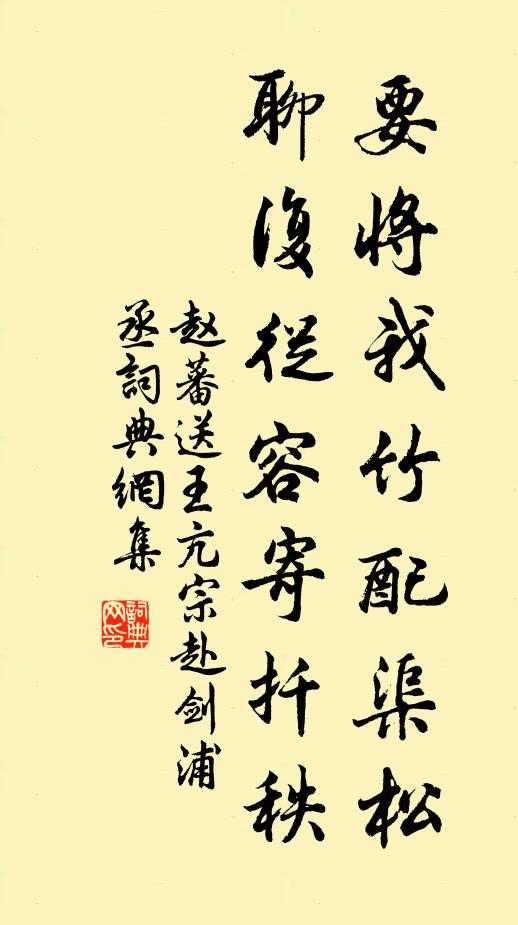 要將我竹配渠松
聊復從容寄扦秩
赵蕃送王亢宗赴剑浦
丞詞典網集
詞典网印